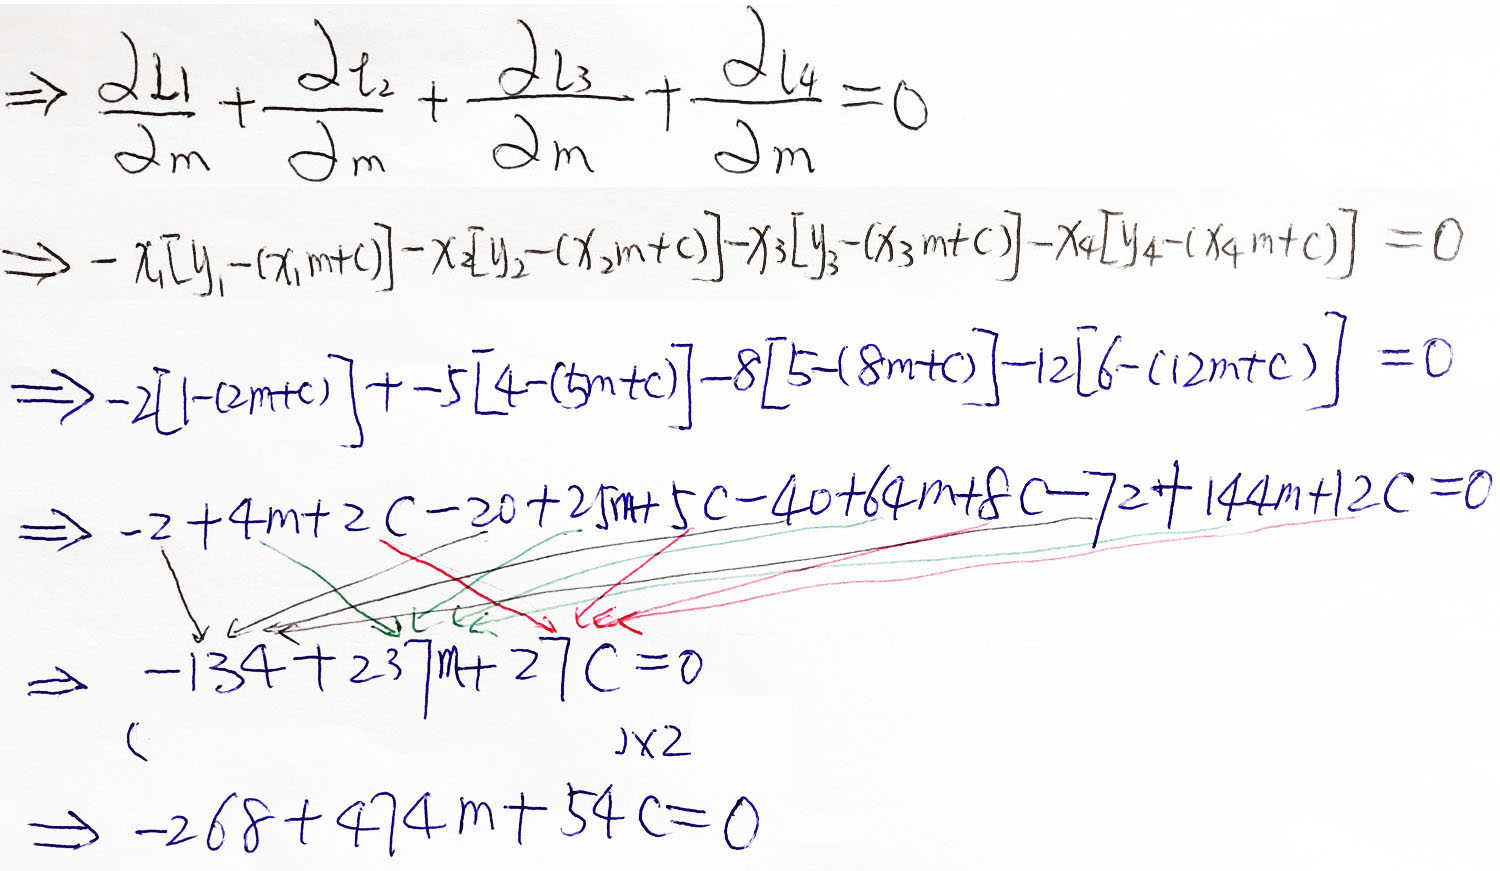 ⇒ ∂L1/∂m + ∂l2/∂m + ∂l3/∂m + ∂l4/∂m = 0
⇒ -x₁[y₁-(x₁m+c)]-x₂[y₂-(x₂m+c)]-x₃[y₃-(x₃m+c)]-x₄[y₄-(x₄m+c)] = 0
⇒ -2[1-(2m+c)]+-5[4-(5m+c)]-8[5-(8m+c)]-12[6-(12m+c)] = 0
⇒ -2+4m+2C-20+25m+5C-40+64m+8C-72+144m+12C=0
⇒ -134+237m+27C=0
( )x2
⇒ -268+474m+54C=0